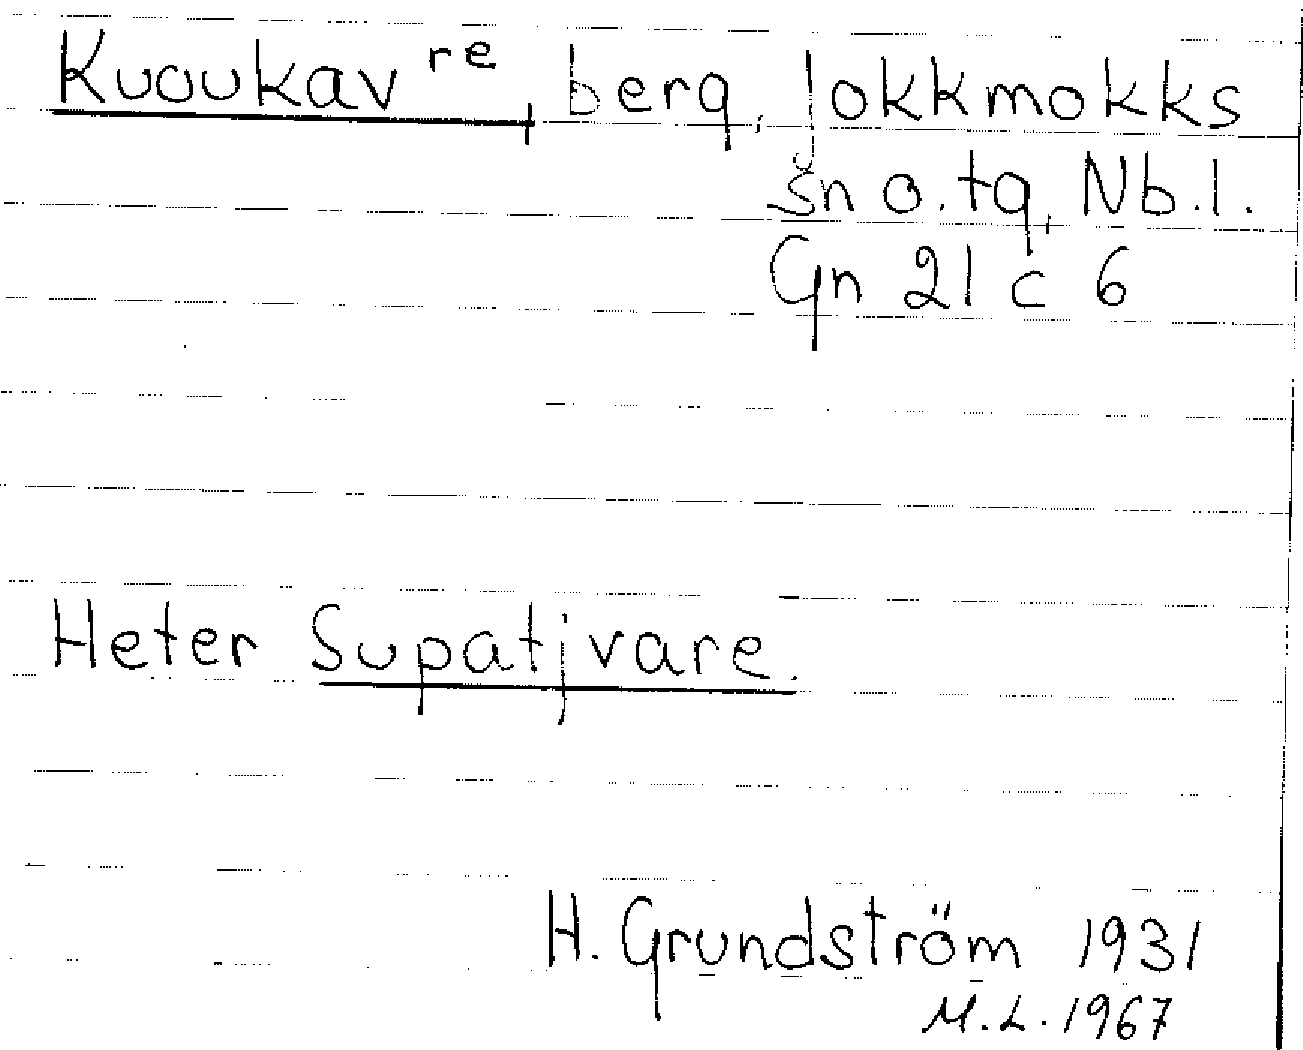 Kuoukav re, berg, Jokkmokks
sn o. tg, Nb. l.
Gn 21 c 6
Heter Supatjvare.
H. Grundström 1931
M. L. 1967